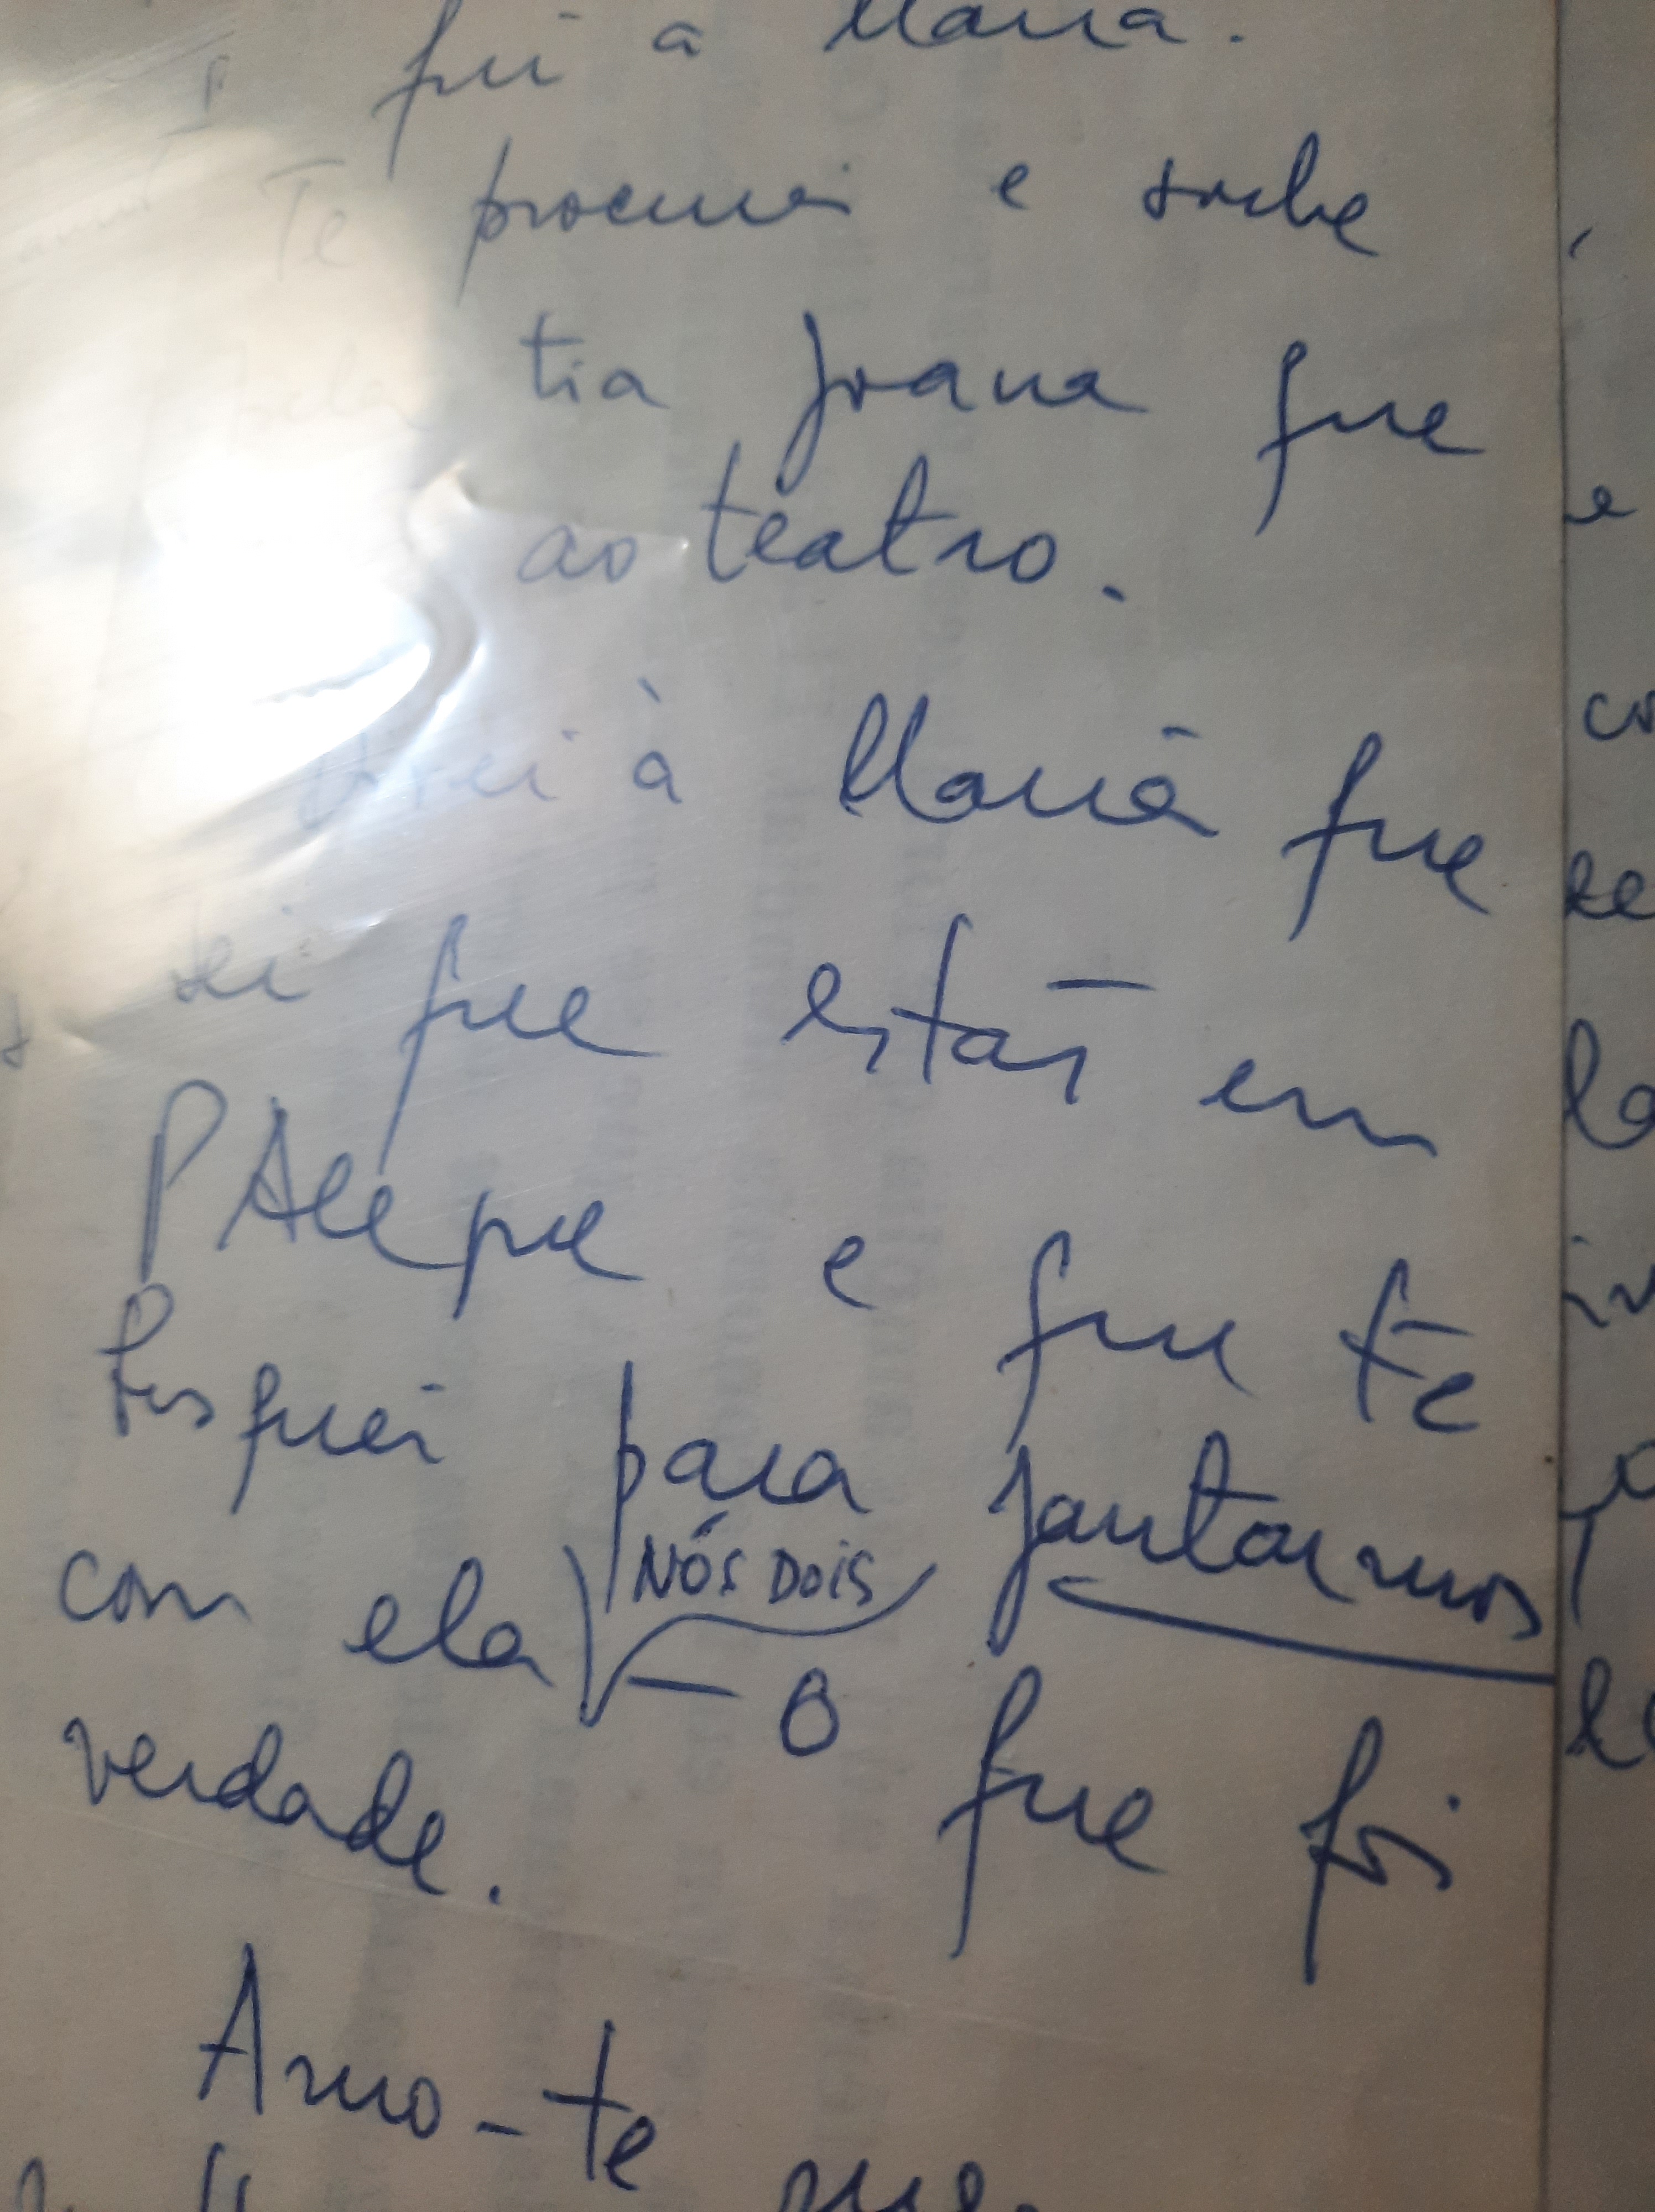 fui a Maria.
Te procurei e soube
pela tia Joana que
ao teatro.
direi à Maria que
sei que estás em
PAlegre e que te
Busquei para jantarmos
com ela NÓS DOIS — O que foi
verdade.
Amo-te